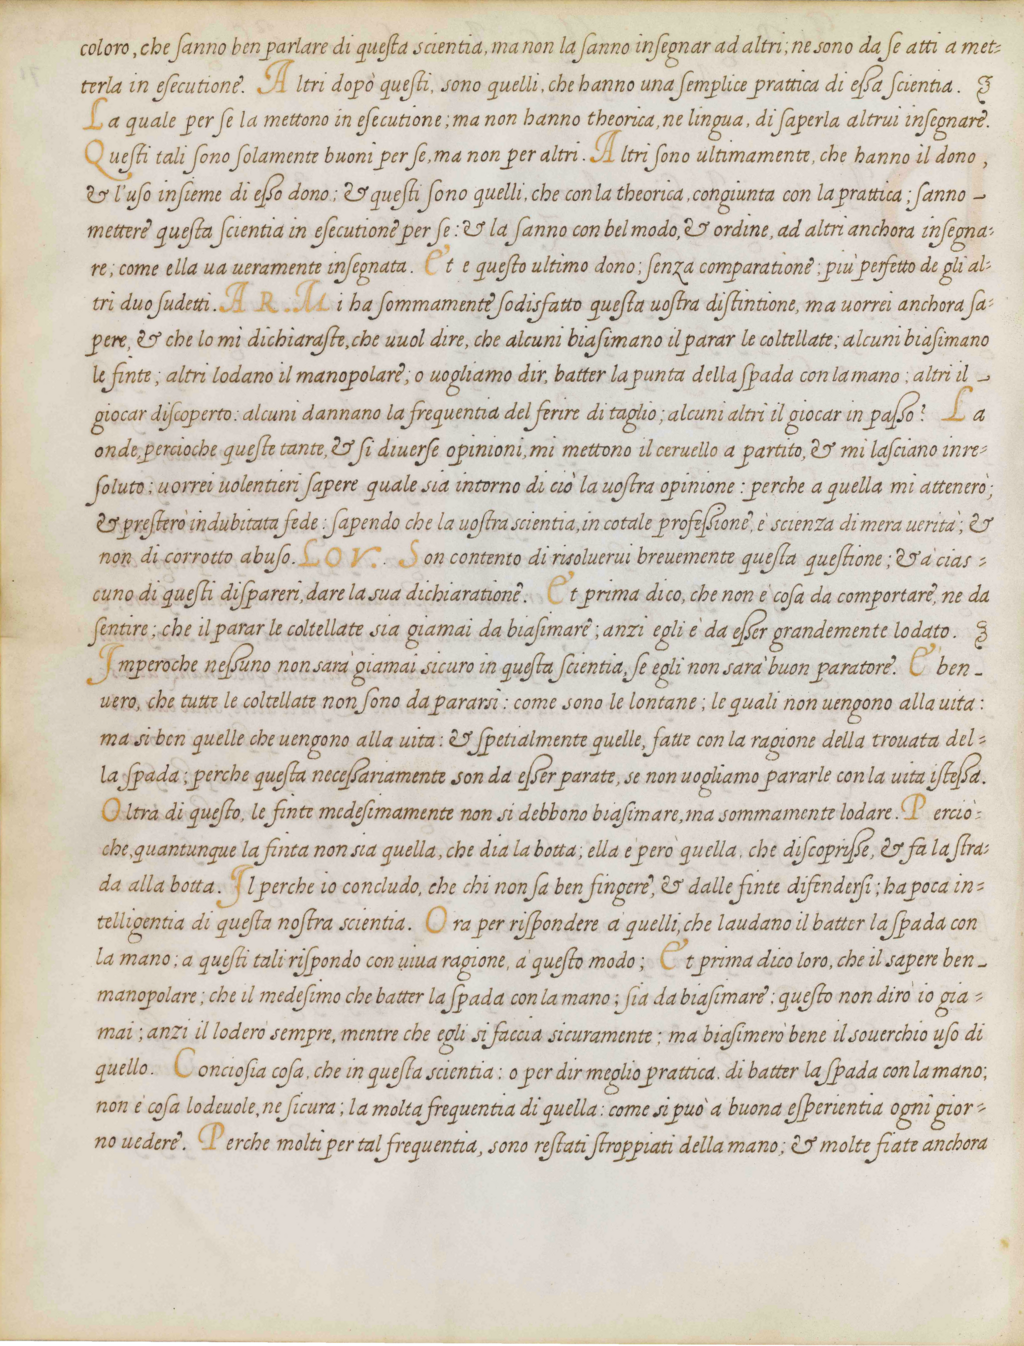 coloro, che sanno ben parlare di questa scientia, ma non la sanno insegnar ad altri; ne sono da se atti a met=
terla in esecutione. Altri dopò questi, sono quelli, che hanno una semplice prattica di essa scientia.
La quale per se la mettono in esecutione; ma non hanno theorica, ne lingua, di saperla altrui insegnare.
Questi tali sono solamente buoni per se, ma non per altri. Altri sono ultimamente, che hanno il dono,
& l'uso insieme di esso dono: & questi sono quelli, che con la theorica, congiunta con la prattica; sanno -
mettere questa scientia in esecutione per se: & la sanno con bel modo, & ordine, ad altri anchora insegna=
re; come ella ua ueramente insegnata. Et e questo ultimo dono; senza comparatione; più perfetto de gli al=
tri duo sudetti. ARM Mi ha sommamente sodisfatto questa uostra distintione, ma uorrei anchora sa=
pere, & che lo mi dichiaraste, che uuol dire, che alcuni biasimano il parar le coltellate; alcuni biasimano
le finte; altri lodano il manopolare; o uogliamo dir, batter la punta della spada con la mano; altri il -
giocar discoperto: alcuni dannano la frequentia del ferire di taglio; alcuni altri il giocar in passo? La
onde, percioche queste tante, & si diuerse opinioni, mi mettono il ceruello a partito, & mi lasciano inre=
soluto; uorrei uolentieri sapere quale sia intorno di ciò la uostra opinione: perche a quella mi attenerò;
& presterò indubitata fede: sapendo che la uostra scientia, in cotale professione, è scienza di mera uerità; &
non di corrotto abuso. LOV. Son contento di risoluerui breuemente questa questione; & à cias=
cuno di questi dispareri, dare la sua dichiaratione. Et prima dico, che non è cosa da comportare, ne da
sentire; che il parar le coltellate sia giamai da biasimare; anzi egli è da esser grandemente lodato.
Imperoche nessuno non sarà giamai sicuro in questa scientia, se egli non sarà buon paratore. E' ben -
uero, che tutte le coltellate non sono da pararsi: come sono le lontane; le quali non uengono alla uita:
ma si ben quelle che uengono alla uita: & spetialmente quelle, fatte con la ragione della trouata del=
la spada; perche questa necessariamente son da esser parate, se non uogliamo pararle con la uita istessa.
Oltrà di questo, le finte medesimamente non si debbono biasimare, ma sommamente lodare. Perciò=
che, quantunque la finta non sia quella, che dia la botta; ella e però quella, che discoprisse, & fà la stra=
da alla botta. Il perche io concludo, che chi non sa ben fingere, & dalle finte difendersi; ha poca in=
telligentia di questa nostra scientia. Ora per rispondere à quelli, che laudano il batter la spada con
la mano; a questi tali rispondo con uiua ragione, à questo modo; Et prima dico loro, che il sapere ben -
manopolare; che il medesimo che batter la spada con la mano; sia da biasimare; questo non dirò io gia=
mai; anzi il loderò sempre, mentre che egli si faccia sicuramente; ma biasimerò bene il souerchio uso di
quello. Conciosia cosa, che in questa scientia: o per dir meglio prattica, di batter la spada con la mano;
non è cosa lodeuole, ne sicura; la molta frequentia di quella: come si può à buona esperientia ogni gior=
no uedere. Perche molti per tal frequentia, sono restati stroppiati della mano; & molte fiate anchora